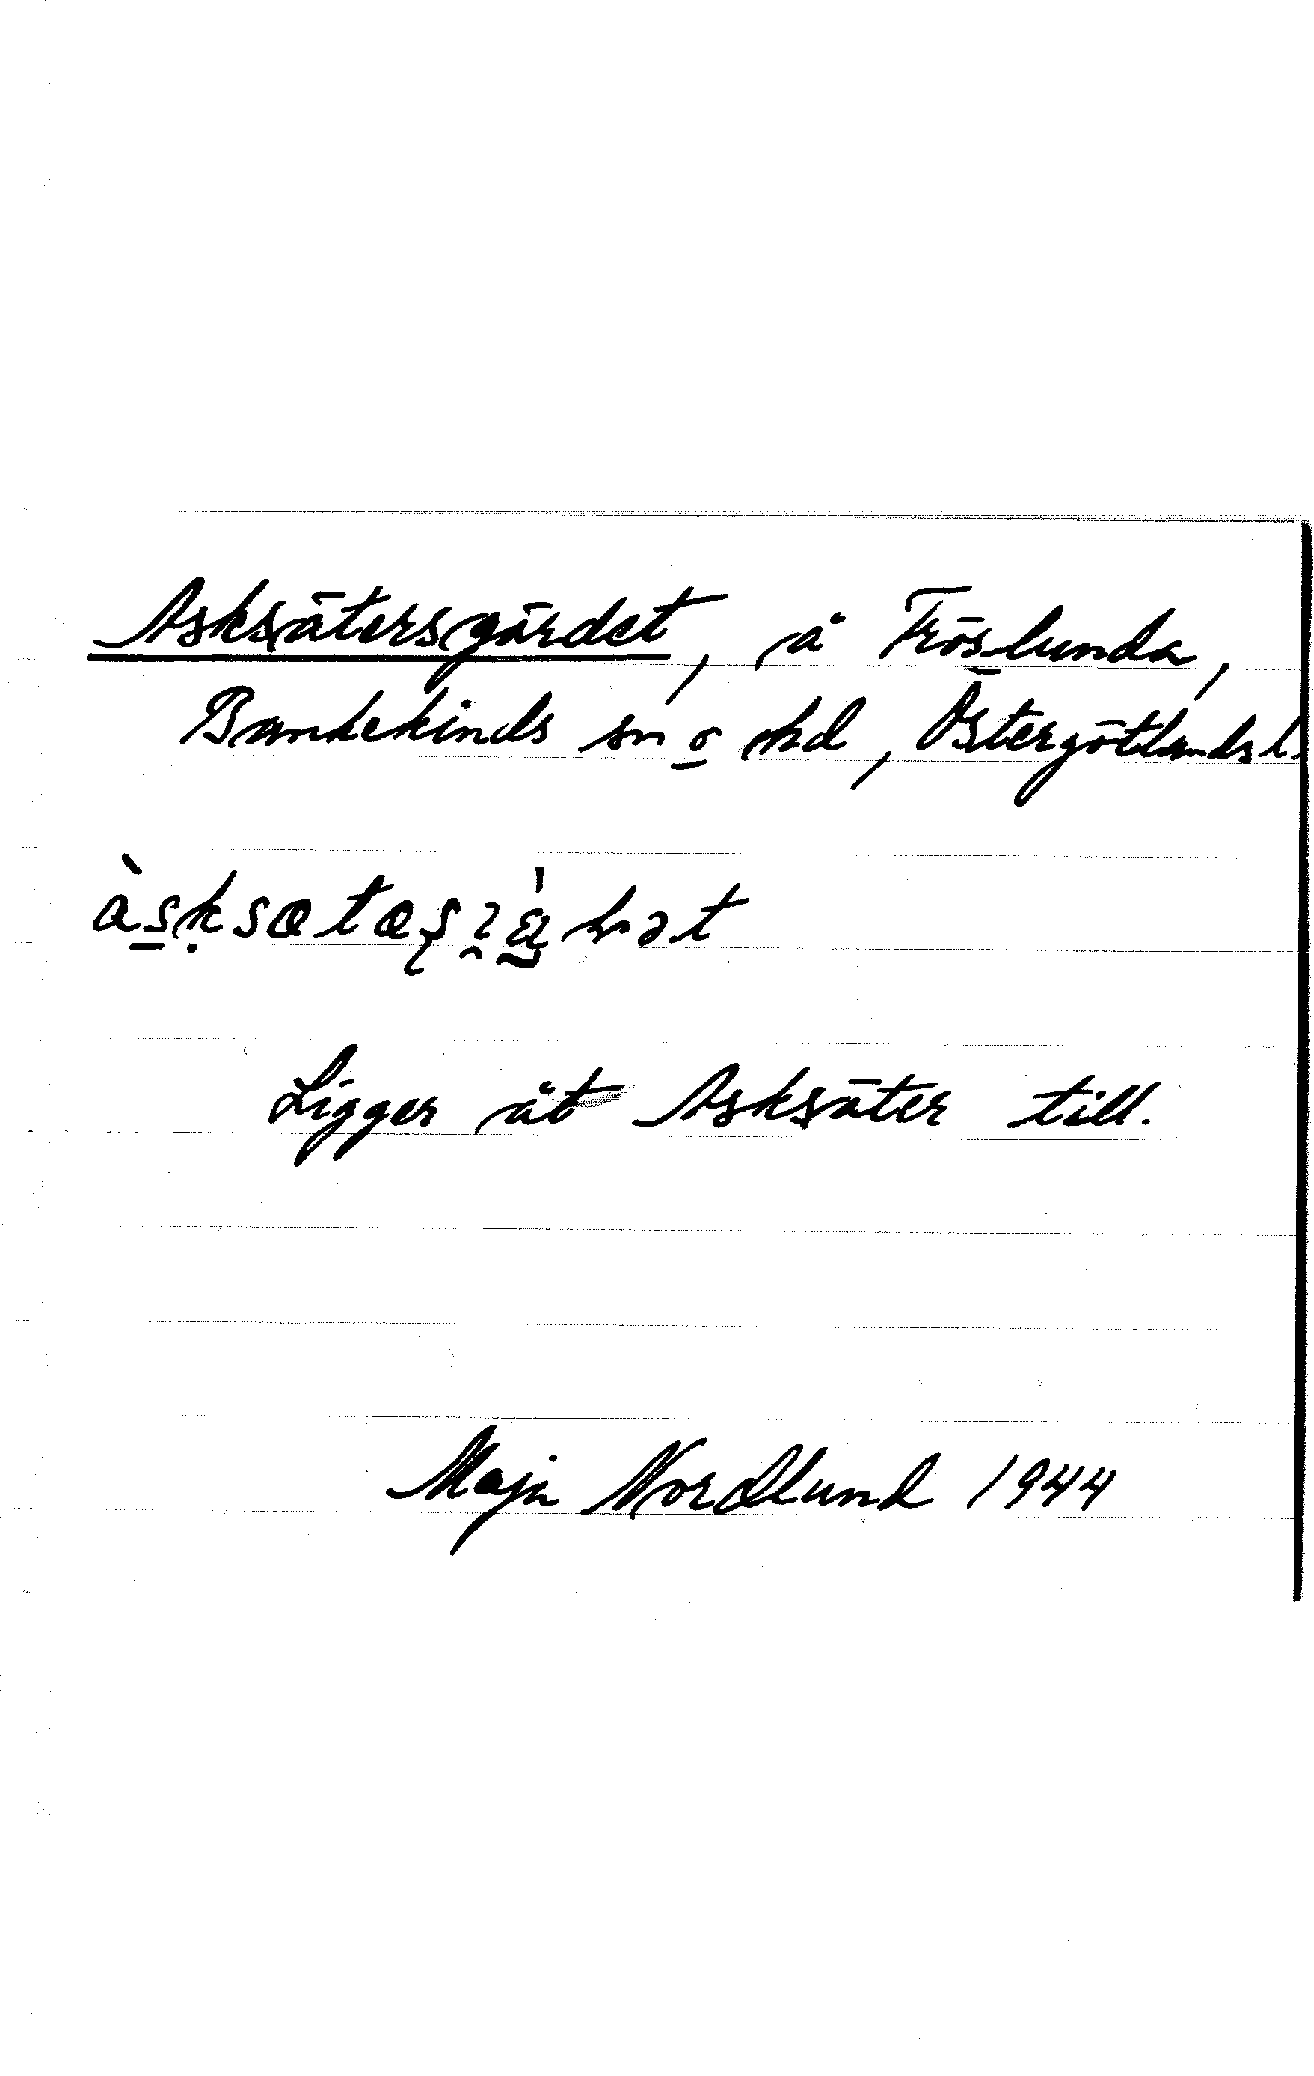 Asksätersgärdet, å Fröslunda,
Bankekinds sn o hd, Östergötlands l.
Ligger åt Asksäter till.
Maja Nordlund 1944